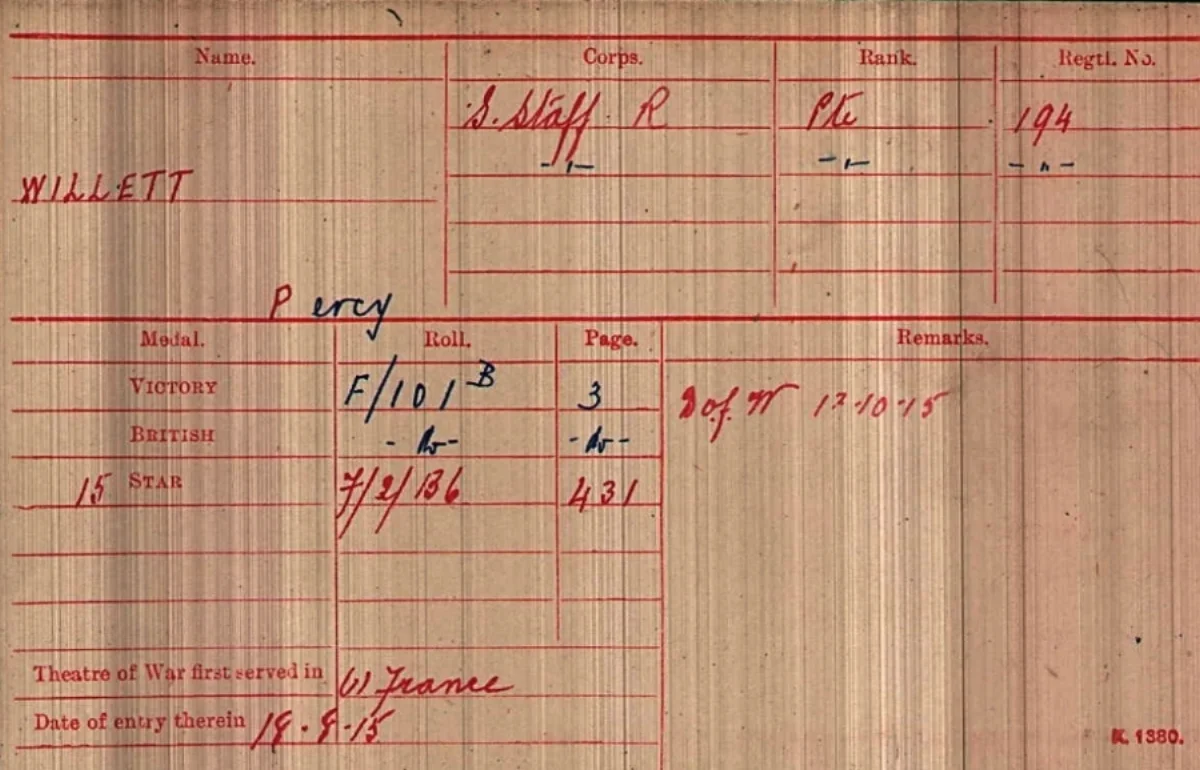 Name. Corps. Rank. Regtl. No.
S. Staff. R Pte 194
-"- -"- -"-
WILLETT
Percy
Medal. Roll. Page. Remarks.
VICTORY F/101 B 3 D of W
BRITISH -do- -do-
15 STAR 7/2/B6 431
Theatre of War first served in (1) France
Date of entry therein
K. 1380.